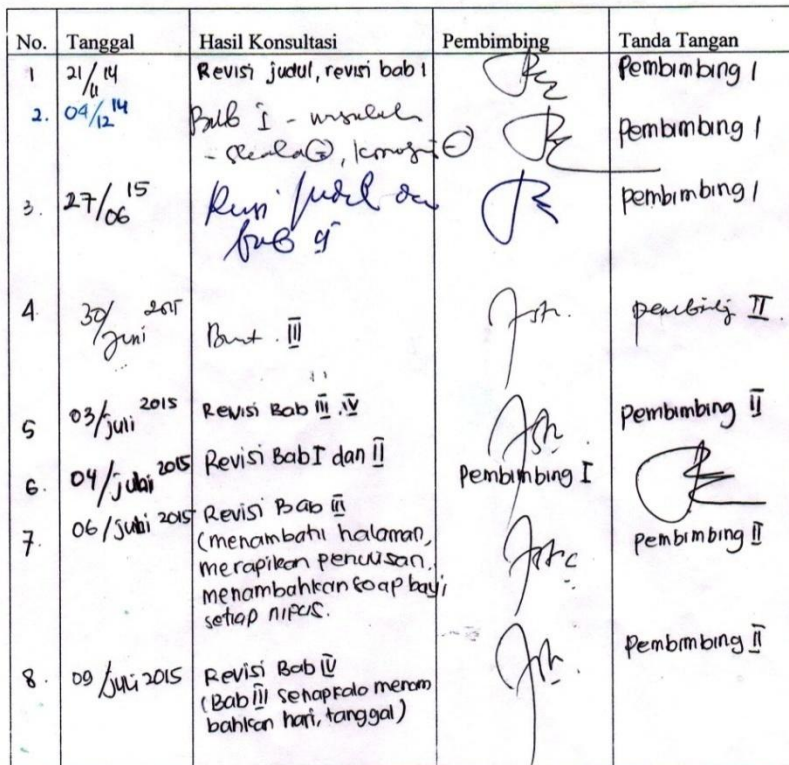 No. Tanggal Hasil Konsultasi Pembimbing Tanda Tangan
1 21/11 14 Revisi judul, revisi bab 1 Pembimbing 1
2. 04/12 14 Bab I - masalah Pembimbing 1
- skala
3. 27/06 15 Revisi judul dan Pembimbing 1
bab
4. 30/juni 2015 III pembimbing II
5 03/juli 2015 Revisi Bab III, IV Pembimbing II
6. 04/juli 2015 Revisi Bab I dan II Pembimbing I
7. 06/juli 2015 Revisi Bab III Pembimbing II
(menambahi halaman,
merapikan penulisan,
menambahkan soap bayi
setiap nifas.
8. 09/juli 2015 Revisi Bab IV Pembimbing II
(Bab III menam
bahkan hari, tanggal)